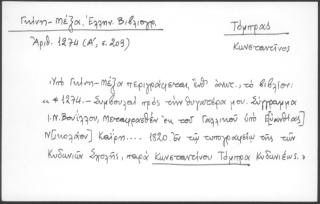 Γκίνη - Μέξα, Ἑλλην. Βιβλιογρ.
Τόμπρας
Ἀριθ. 1274 (Α', σ. 209)
Κωνσταντῖνος
Ὑπὸ Γκίνη-Μέξα περιγράφεται, τὸ βιβλίον:
«*1274.- Συμβουλαὶ πρὸς τὴν θυγατέρα μου. Σύγγραμμα
Ι.Ν. Βουΐλλου, Μεταφρασθὲν ἐκ τοῦ Γαλλικοῦ ὑπὸ Ε[ὐανθίας]
Ν[ικολάου] Καΐρη.... 1820. Ἐν τῷ τυπογραφείῳ τῆς τῶν
Κυδωνιῶν Σχολῆς, παρὰ Κωνσταντίνου Τόμπρα Κυδωνιέως.»